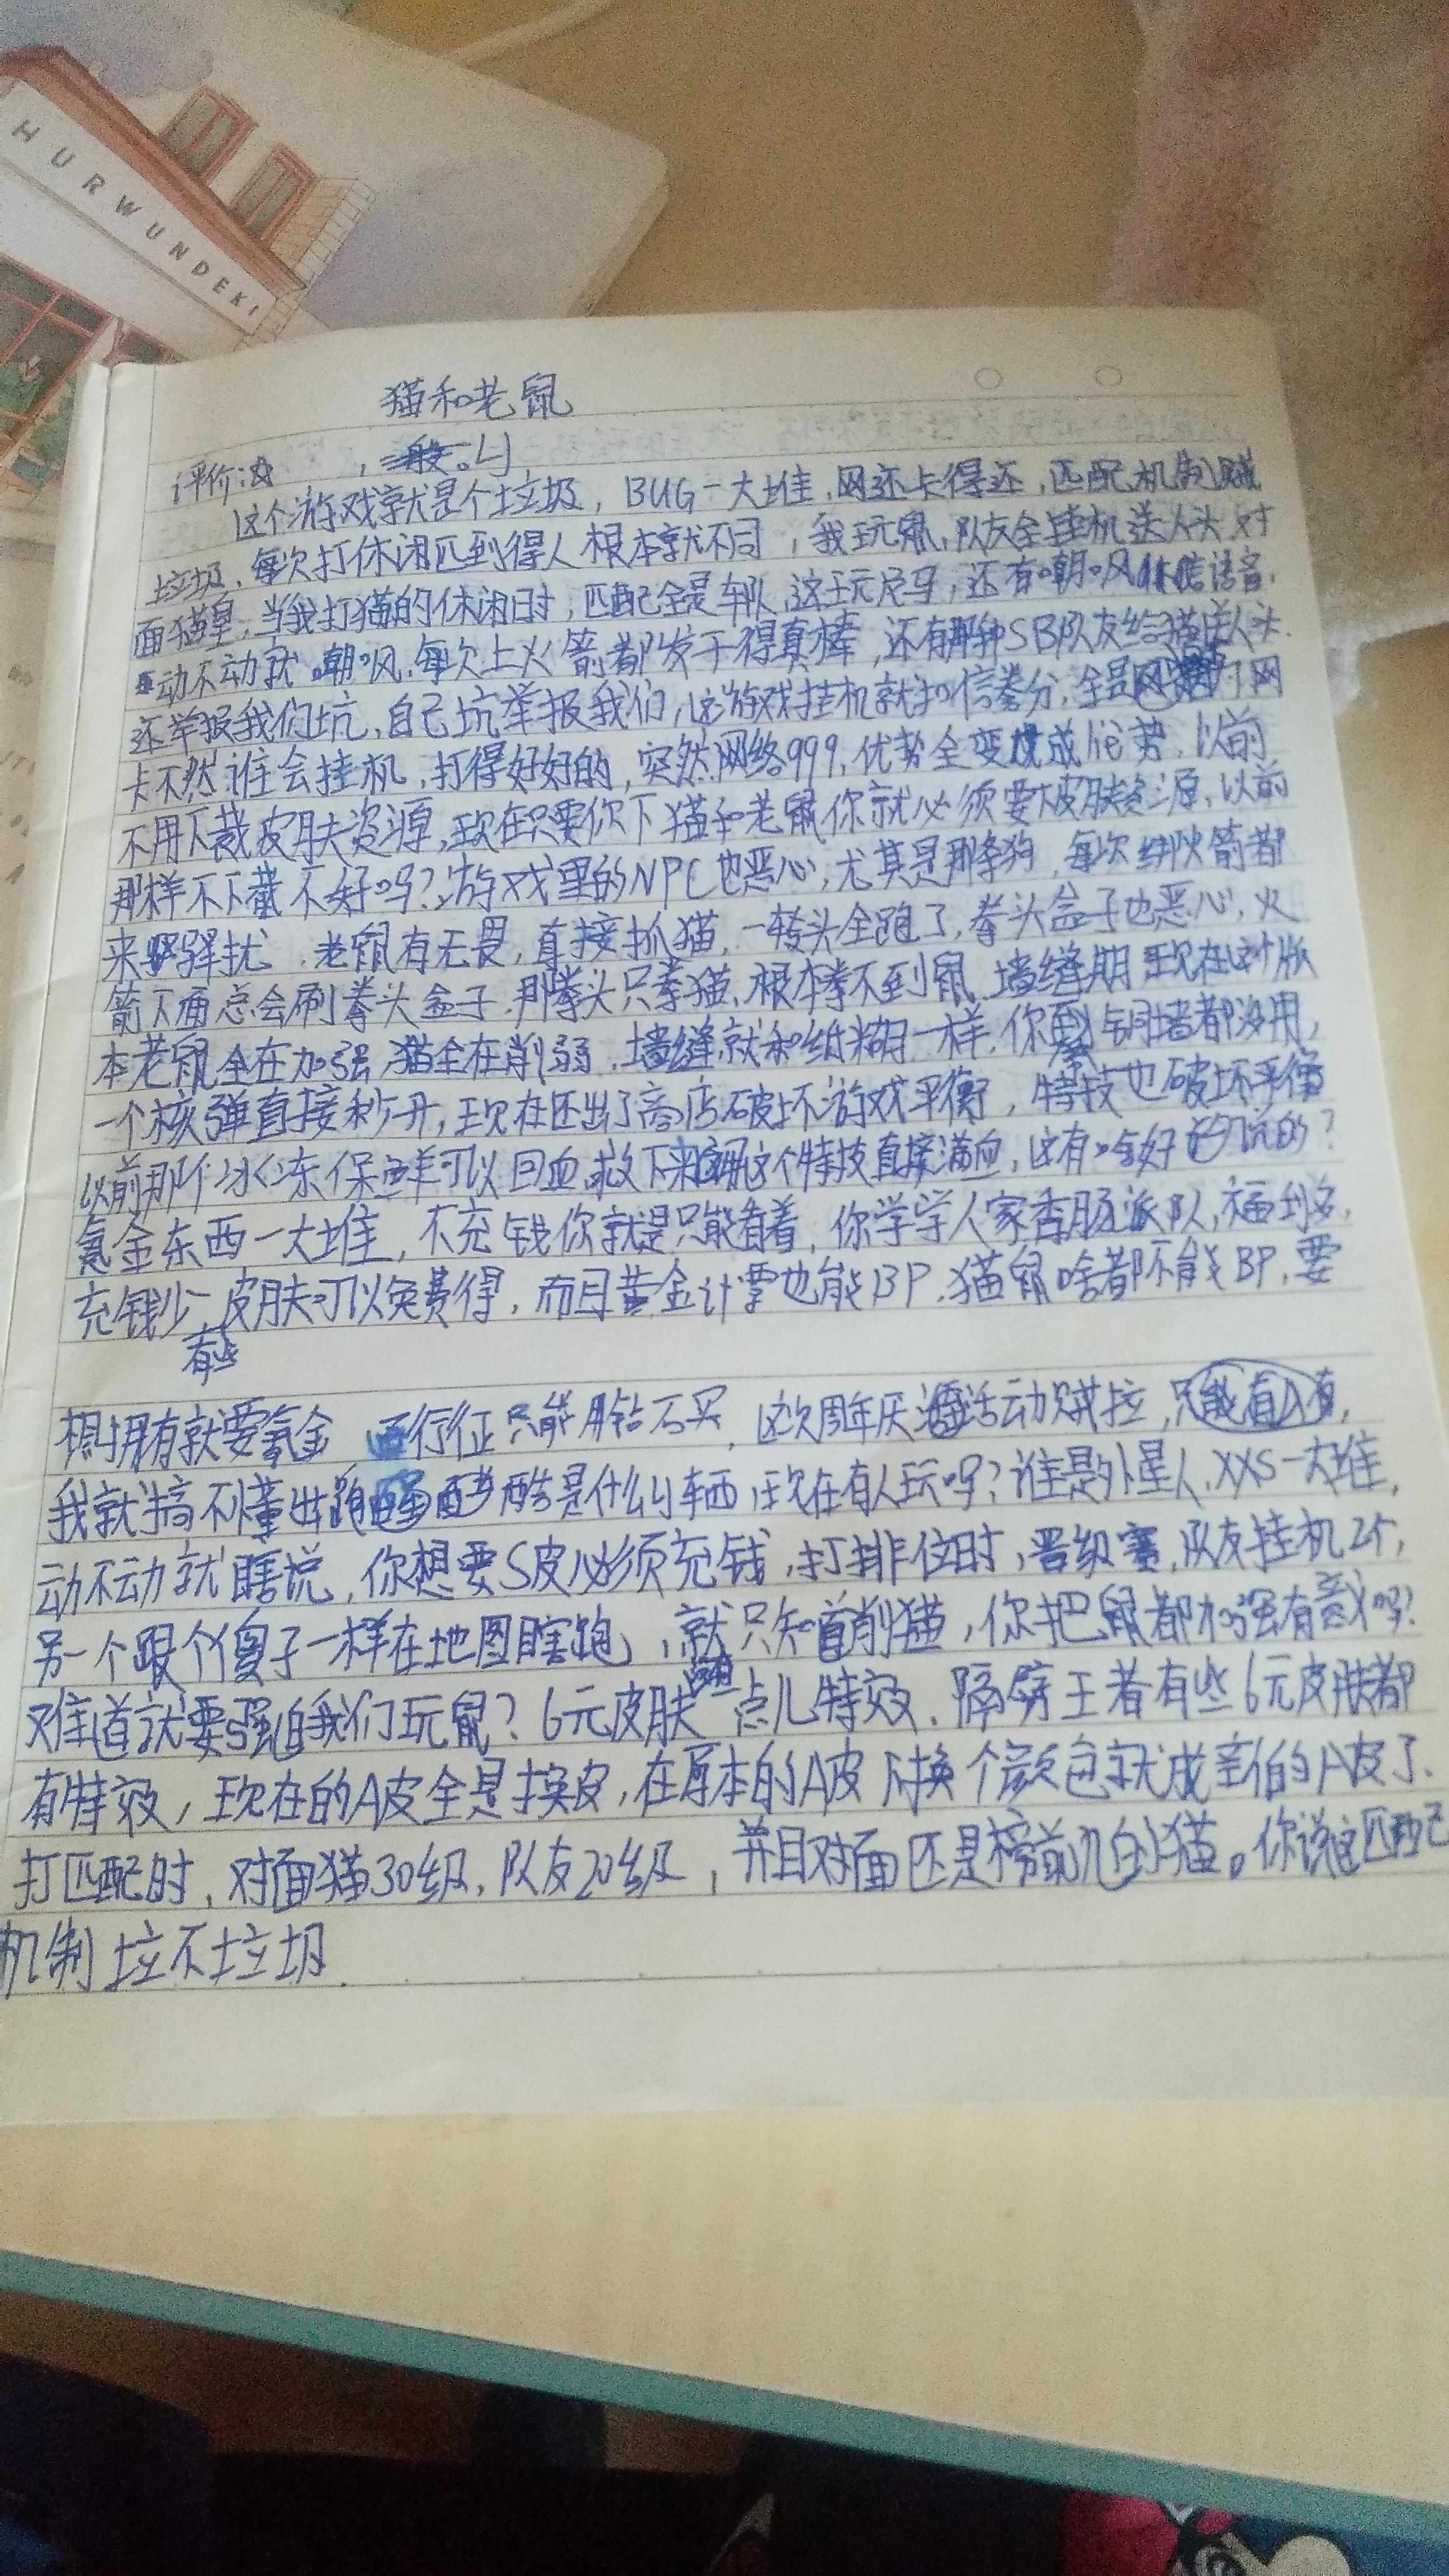 HURWUNDEKI
猫和老鼠
评价:☆ , 一般。
这个游戏就是个垃圾,BUG一大堆,网还卡得还,匹配机制贼
垃圾,每次打休闲匹到得人根本就不同,我玩鼠,队友全挂机送人头对
面猫皇,当我打猫的休闲时,匹配全是车队,这玩尼马,还有嘲风 语音,
动不动就嘲风,每次上火箭都发干得真棒,还有那种SB队友给猫送人头.
还举报我们坑,自己坑举报我们,这游戏挂机就扣信誉分,全是网 网
卡不然谁会挂机,打得好好的,突然网络999,优势全变成lie势,以前
不用下载皮肤资源,现在只要你下猫和老鼠你就必须要下皮肤资源,以前
那样不下载不好吗?游戏里的NPC也恶心,尤其是那条狗,每次绑火箭都
来骚扰,老鼠有无畏,直接抓猫,一转头全跑了,拳头盒子也恶心,火
箭下面总会刷拳头盒子,那拳头只拳猫,根本拳不到鼠,墙缝期现在这个版
本老鼠全在加强,猫全在削弱,墙缝就和纸糊一样,你 铜墙都没用,
一个核弹直接秒开,现在还出了商店破坏游戏平衡,特技也破坏平衡
以前那个冰冻保鲜可以回血,救下来 这个特技直接满血,这有啥好 说的?
氪金东西一大堆,不充钱你就是只能看着,你学学人家香肠派队,福利多,
充钱少,有些皮肤可以免费得,而且黄金计票也能BP,猫鼠啥都不能BP,要
想拥有就要氪金 行征只能用钻石买,这次周年庆活动贼拉,只能 有,
我就搞不懂出 酷是什么东西,现在有人玩吗?谁是外星人,XXS一大堆,
动不动就瞎说,你想要S皮必须充钱,打排位时,晋级赛,队友挂机2个,
另一个跟个傻子一样在地图瞎跑,就只知道削猫,你把鼠都加强有意义吗?
难道就要强迫我们玩鼠?6元皮肤 一点儿特效,隔壁王者有些6元皮肤都
有特效,现在的A皮全是换皮,在原本的A皮 换个颜色就成全新的A皮了.
打匹配时,对面猫30级,队友20级,并且对面还是榜前几的猫。你说这匹配
机制垃不垃圾.